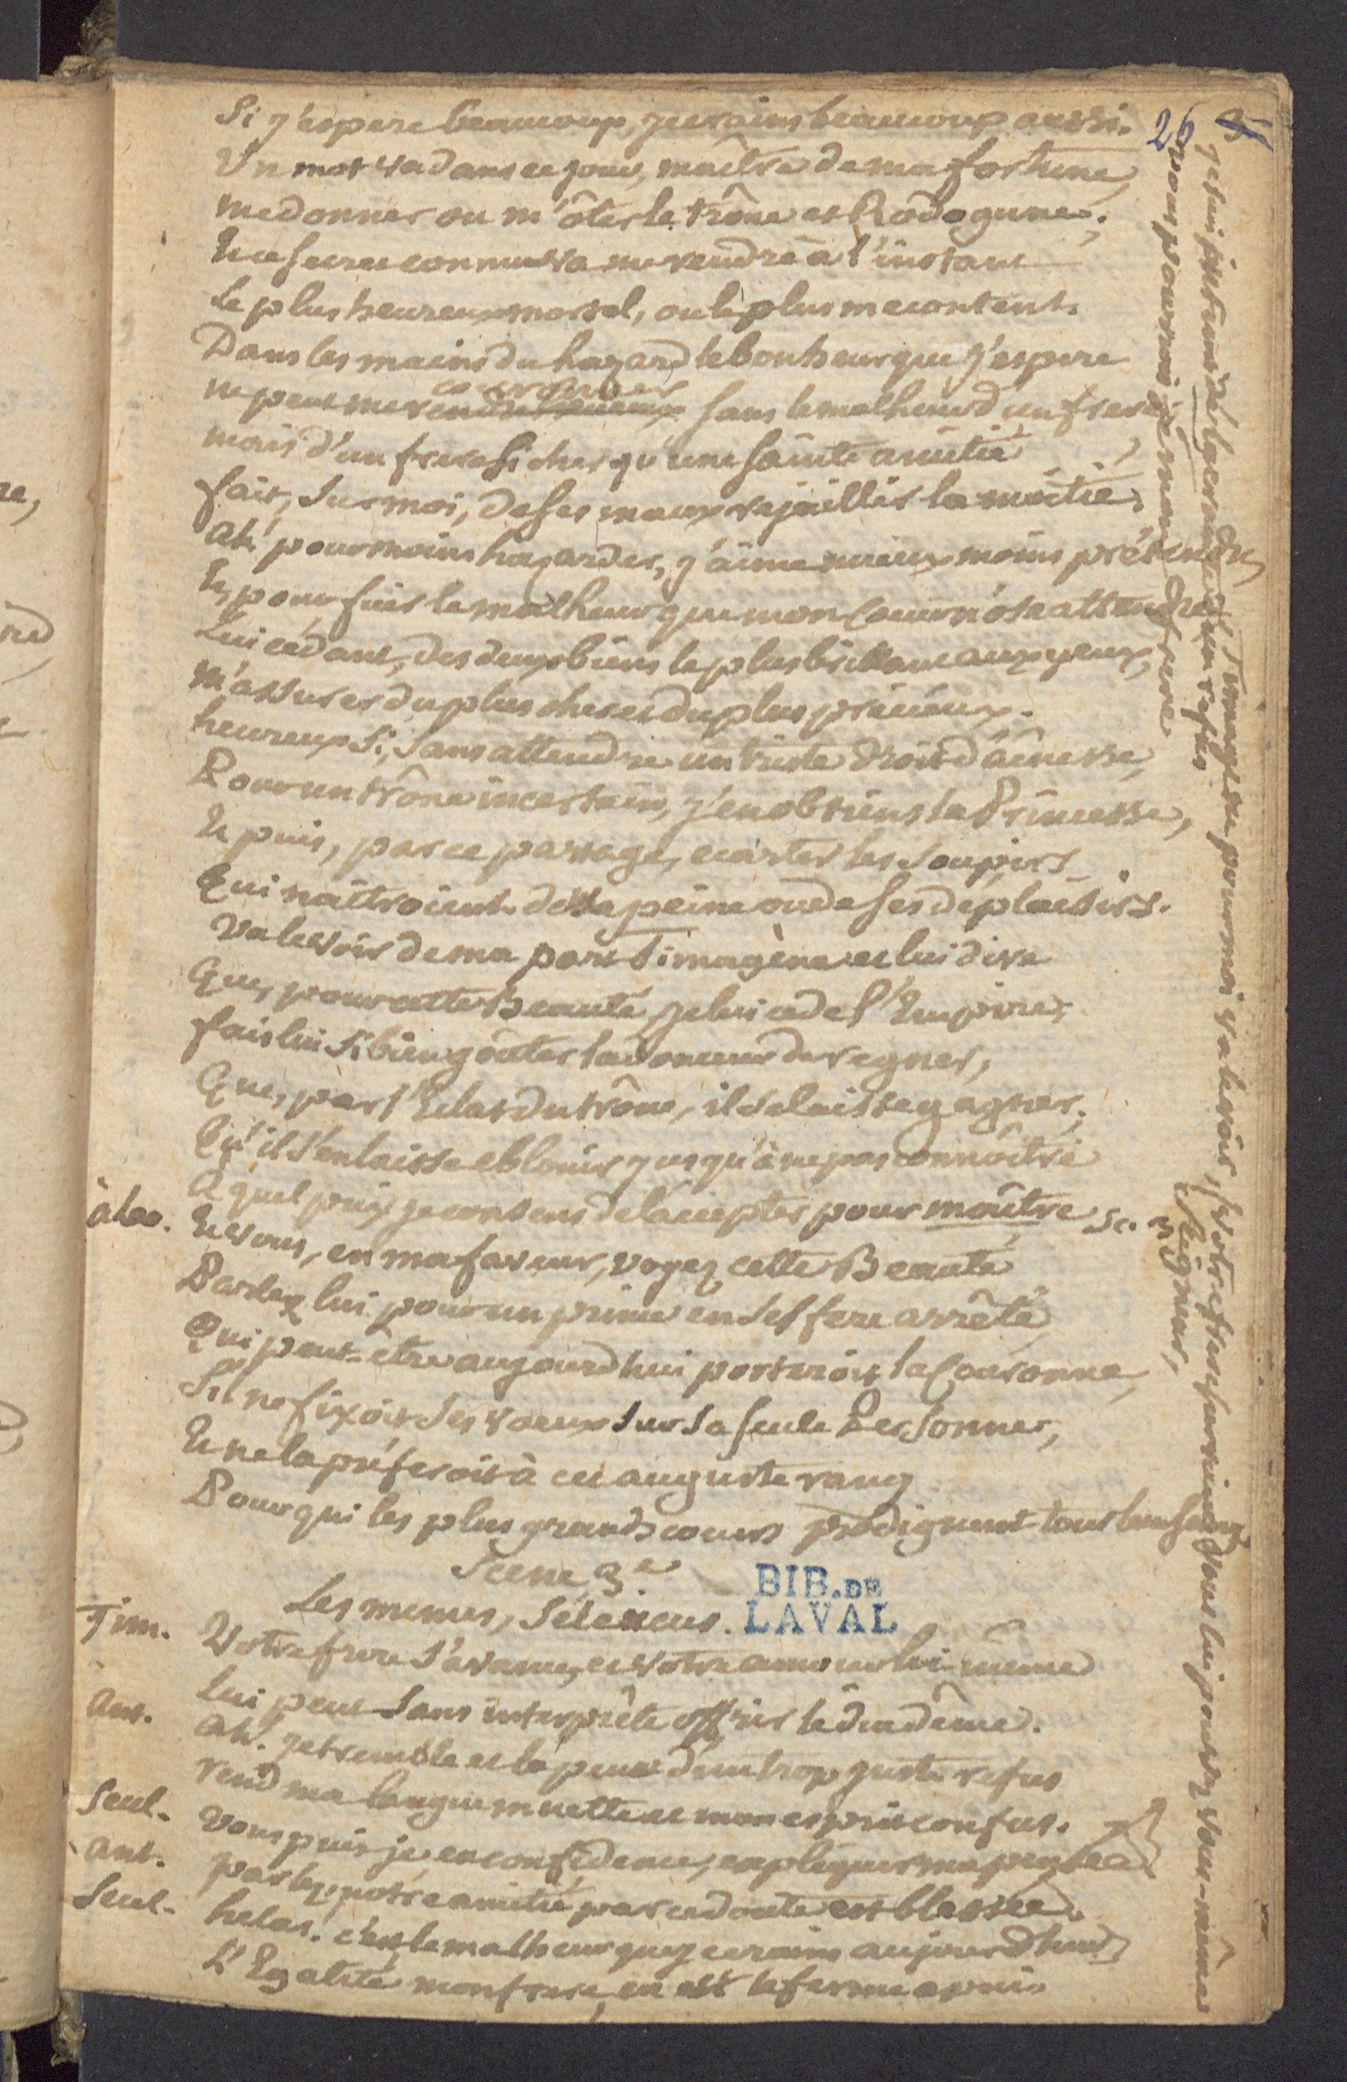 26
Si j'espere beaucoup, je crains beaucoup aussi.
Un mot va dans ce jour, maître de ma fortune,
me donner ou m'ôter le trône et Rodogune;
Et ce secret connu va me rendre à l'instant
Le plus heureux mortel, ou le plus mecontent.
Dans les mains du hazard le bonheur que j'espere
couronner
ne peut me rendre heureux sans le malheur d'un frere
mais d'un frere si cher qu'une sainte amitié
fait, sur moi, de ses maux rejaillir la moitié,
ah! pour moins hazarder, j'aime mieux moins prétendre
Et, pour fuir le malheur que mon Coeur n'ose attendre
Lui cédant, des deux biens le plus brillant aux yeux,
m'assurer du plus cher et du plus précieux.
heureux si, sans attendre un triste droit d'aînesse,
Pour un trône incertain, j'en obtiens la Princesse,
Et puis, par ce partage, ecarter les soupirs
Qui naîtroient de sa peine ou de ses déplaisirs.
Va le voir de ma part Timagène et lui dire
Que, pour cette Beauté, je lui cede l'Empire;
fais lui si bien goûter la douceur de regner,
Que, par l'Eclat du trône, il se laisse gagner;
Qu'il s'en laisse eblouir jusqu'à ne pas connoître
A quel prix je consens de l'accepter pour maître Sc. 3
à Lao. Et vous, en ma faveur, voyez cette Beauté
Parlez lui pour un prince en
Qui peut-être aujourd'hui porteroit la Couronne,
S'il ne fixoit ses voeux sur sa seule Personne,
Et ne la préferoit à cet auguste rang
Pour qui les plus grands coeurs prodiguent tout leur sang
Scene 3e
Les memes, Séleucus.
BIB. DE
LAVAL
Tim. Votre frere s'avance, et votre amour lui-même
Lui peut sans interprête offrir le diadême.
Ant. ah! je tremble et la peur d'un trop juste refus
rend ma langue muette et mon esprit confus.
Seul. Vous puis je en confidence, expliquer ma pensée
ant. parlez, notre amitié par ce doute est blessée.
Seul. helas! c'est le malheur que je crains aujourd'hui
L'Egalité mon frere, en est le ferme apuis
pourrois je mon frere
un refus
Timagene pour moi va le voir,
Seigneur,
votre frere survient vous lui pouvez vous-même